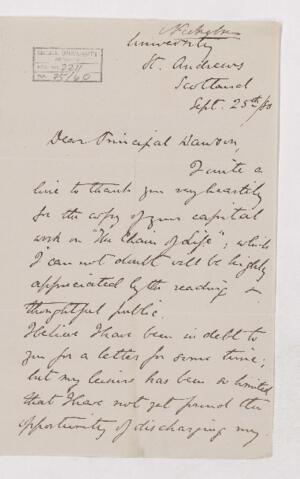 Nicholson
University
St. Andrews
Scotland
Sept. 25th/80
McGILL UNIVERSITY
ACC. NO. 2211
REF. 25/60
Dear Principal Dawson,
I write a
line to thank you very heartily
for the copy of your capital
work on "The Chain of Life", which
I can not doubt will be highly
appreciated by the reading &
thoughtful public.
I believe I have been in debt to
you for a letter for some time,
but my leisure has been so limited
that I have not yet found the
opportunity of discharging my